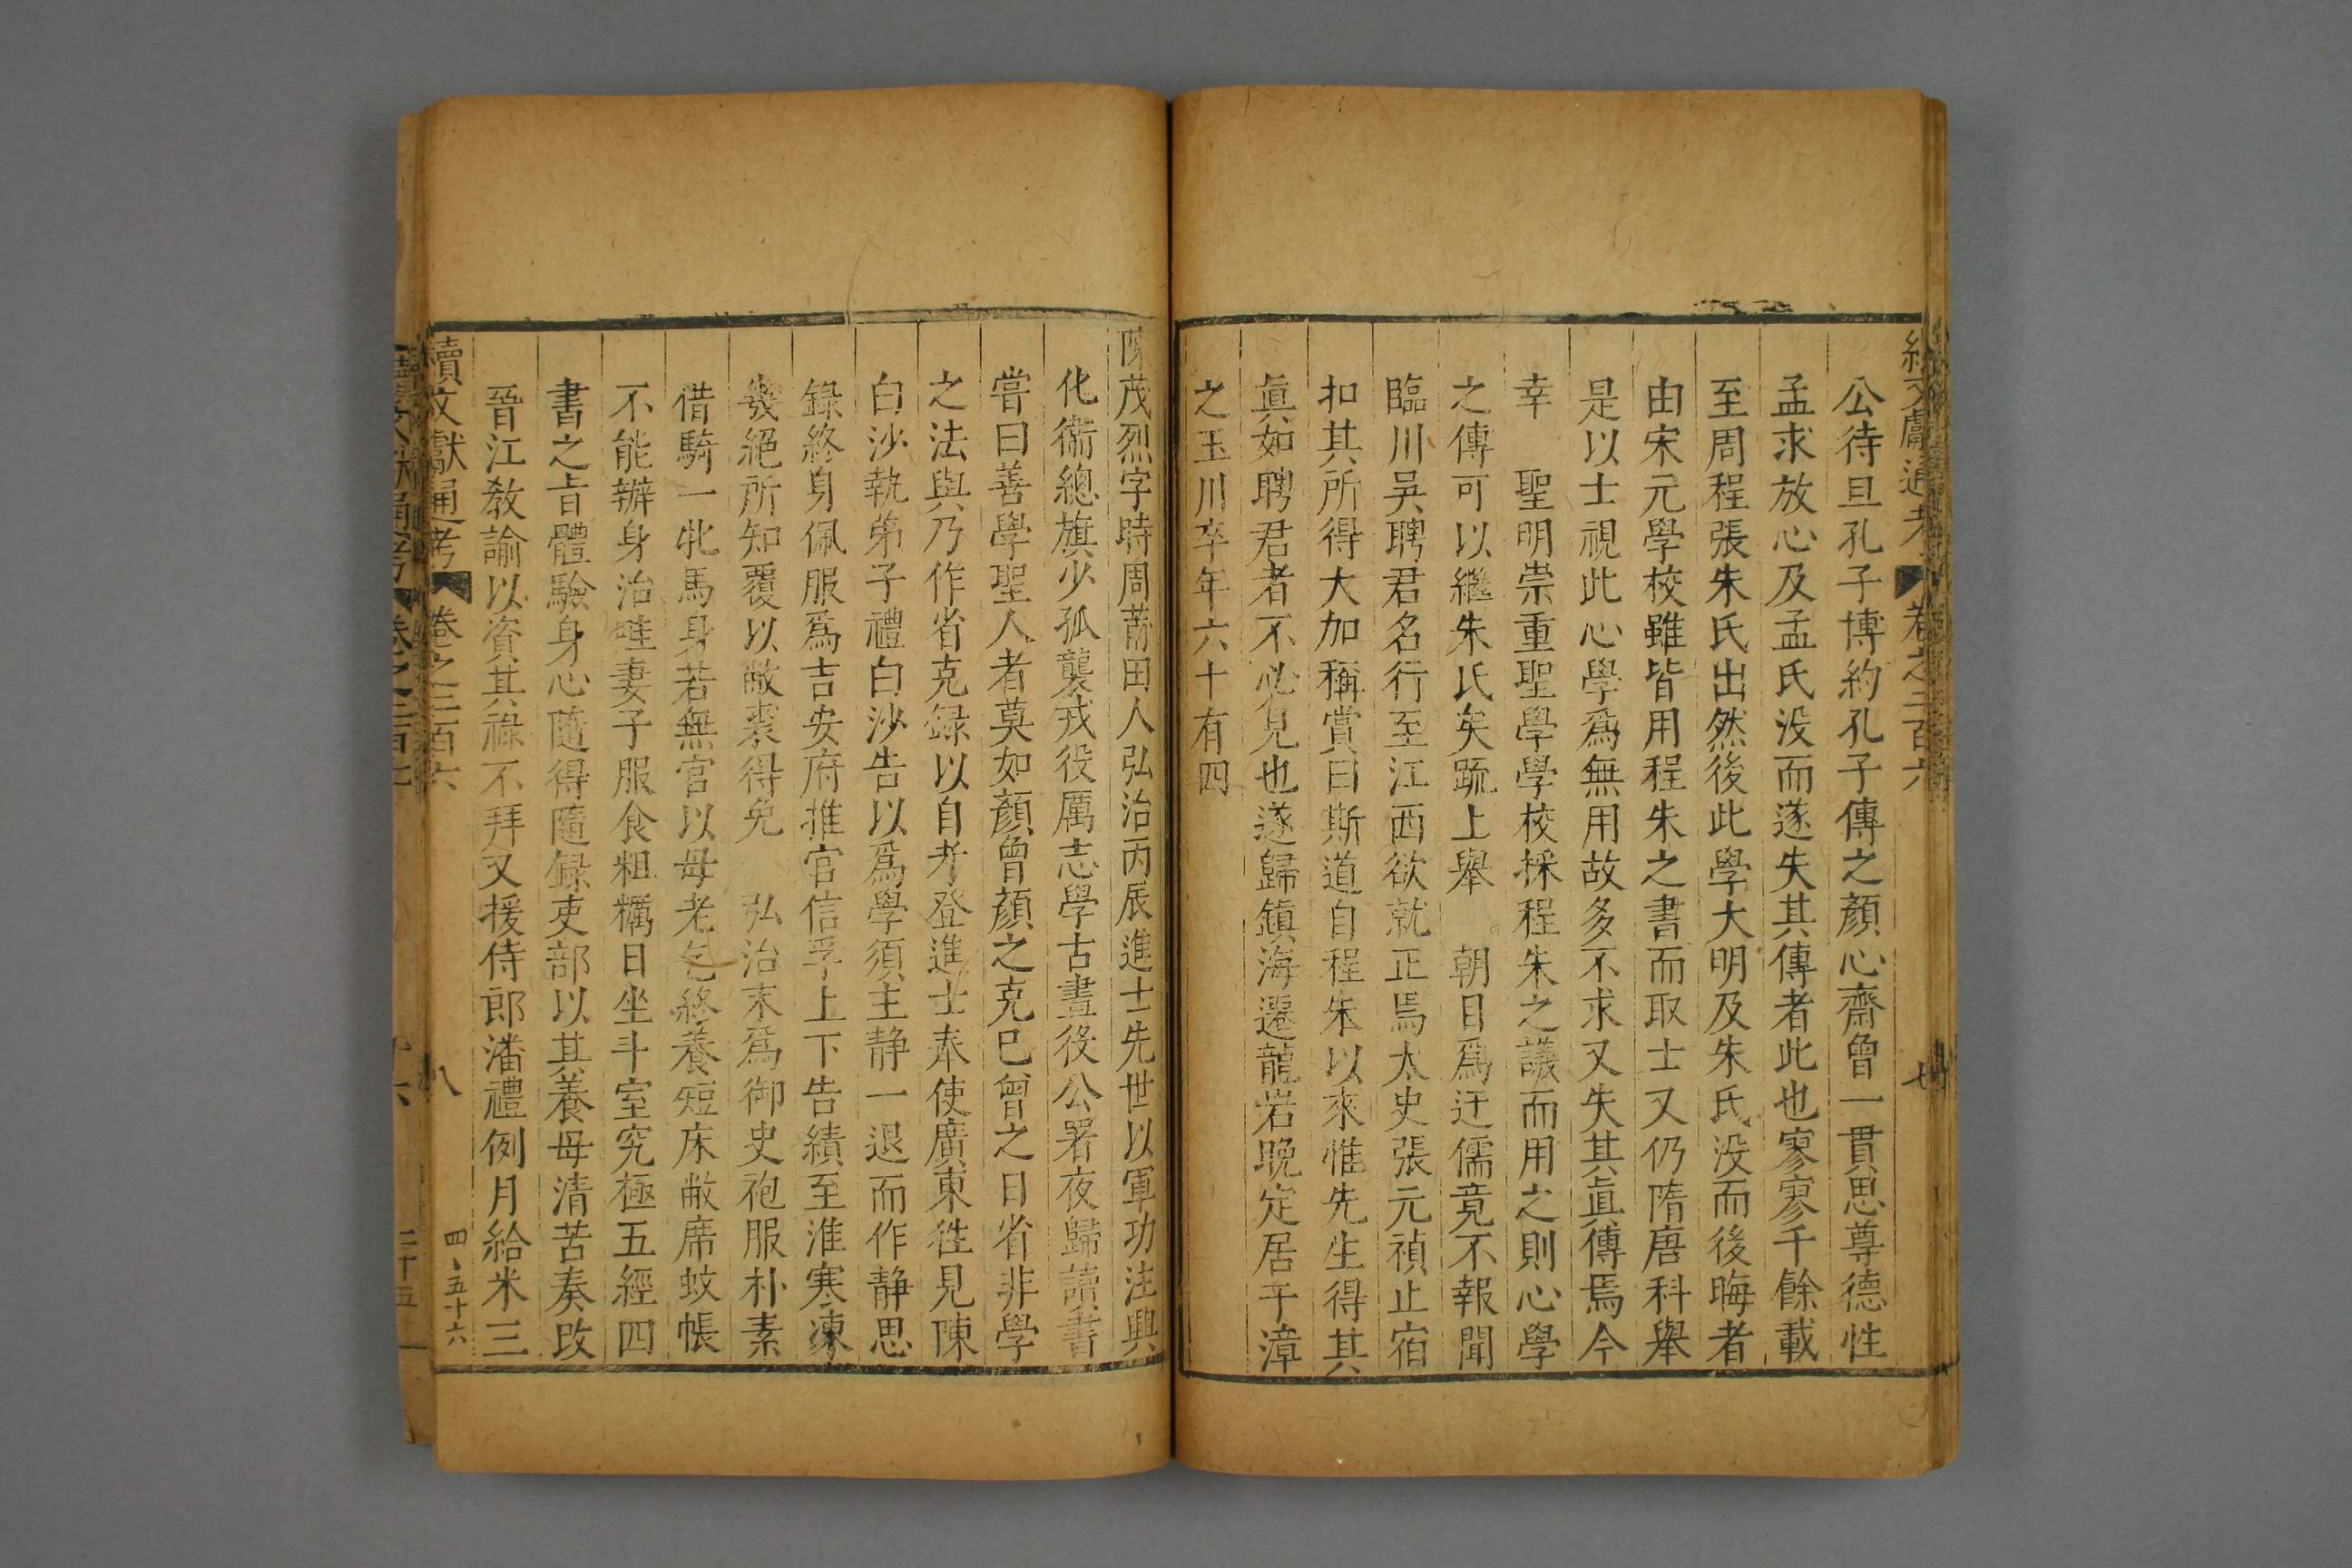 續文獻通考 卷之二百六 七
公待旦孔子博約孔子傳之顏心齋曾一貫思尊德性
孟求放心及孟氏没而遂失其傳者此也寥寥千餘載
至周程張朱氏出然後此學大明及朱氏没而後晦者
由宋元學校雖皆用程朱之書而取士又仍隋唐科舉
是以士視此心學爲無用故多不求又失其眞傳焉今
幸 聖明崇重聖學學校採程朱之議而用之則心學
之傳可以繼朱氏矣䟽上舉 朝目爲迂儒竟不報聞
臨川吳聘君名行至江西欲就正焉太史張元禎止宿
扣其所得大加稱賞曰斯道自程朱以來惟先生得其
眞如聘君者不必見也遂歸鎮海遷龍岩晚定居于漳
之玉川卒年六十有四
陳茂烈字時周莆田人弘治丙辰進士先世以軍功注興
化衛總旗少孤襲戎役厲志學古晝役公署夜歸讀書
嘗曰善學聖人者莫如顏曾顏之克己曾之日省非學
之法與乃作省克録以自考登進士奉使廣東徃見陳
白沙執弟子禮白沙告以爲學須主静一退而作静思
録終身佩服爲吉安府推官信孚上下告績至淮寒凍
㡬絕所知覆以敝裘得免 弘治末爲御史袍服朴素
借騎一牝馬身若無官以母老乞終養短床敝席蚊帳
不能辦身治畦妻子服食粗糲日坐斗室究極五經四
書之旨體驗身心隨得隨録吏部以其養母清苦奏改
晉江教諭以資其祿不拜又援侍郎潘禮例月給米三
續文獻通考 卷之二百六 八 四、五十六